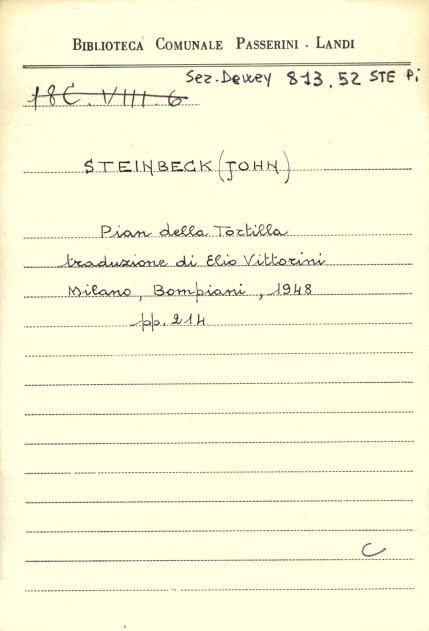 BIBLIOTECA COMUNALE PASSERINI - LANDI
Sez. Dewey 813.52 STE Pi
18C.VIII.6
STEINBECK (JOHN)
Pian della Tortilla
traduzione di Elio Vittorini
Milano, Bompiani, 1948
pp. 214
C